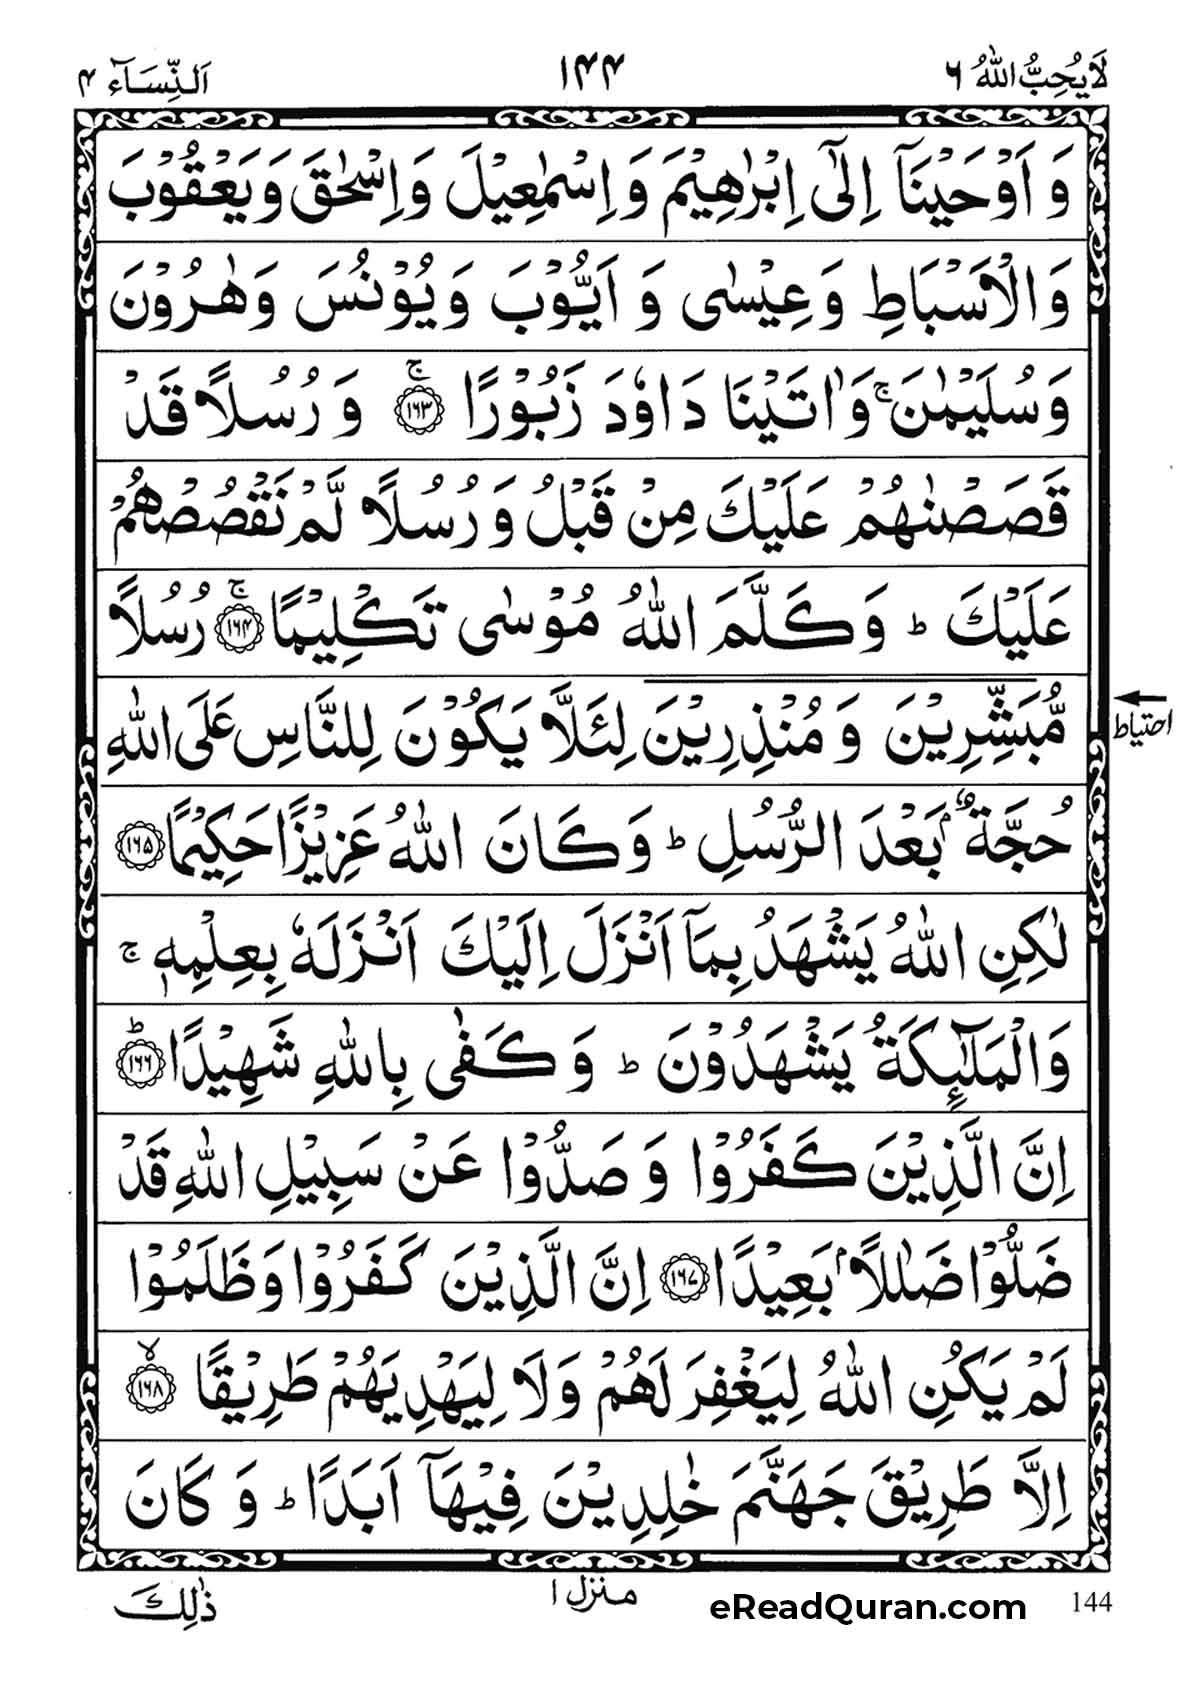 لَا يُحِبُّ اللّٰهُ ٦
١٤٤
اَلنِّسَآء ٤
وَ اَوْحَيْنَآ اِلٰٓى اِبْرٰهِيْمَ وَ اِسْمٰعِيْلَ وَ اِسْحٰقَ وَ يَعْقُوْبَ
وَ الْاَسْبَاطِ وَ عِيْسٰى وَ اَيُّوْبَ وَ يُوْنُسَ وَ هٰرُوْنَ
وَ سُلَيْمٰنَ ۚ وَ اٰتَيْنَا دَاوٗدَ زَبُوْرًا ۚ ﴿١٦٣﴾ وَ رُسُلًا قَدْ
قَصَصْنٰهُمْ عَلَيْكَ مِنْ قَبْلُ وَ رُسُلًا لَّمْ نَقْصُصْهُمْ
عَلَيْكَ ؕ وَ كَلَّمَ اللّٰهُ مُوْسٰى تَكْلِيْمًا ۚ ﴿١٦٤﴾ رُسُلًا
مُّبَشِّرِيْنَ وَ مُنْذِرِيْنَ لِئَلَّا يَكُوْنَ لِلنَّاسِ عَلَى اللّٰهِ
احتیاط
حُجَّةٌۢ بَعْدَ الرُّسُلِ ؕ وَ كَانَ اللّٰهُ عَزِيْزًا حَكِيْمًا ﴿١٦٥﴾
لٰكِنِ اللّٰهُ يَشْهَدُ بِمَآ اَنْزَلَ اِلَيْكَ اَنْزَلَهٗ بِعِلْمِهٖ ۚ
وَ الْمَلٰٓئِكَةُ يَشْهَدُوْنَ ؕ وَ كَفٰى بِاللّٰهِ شَهِيْدًا ؕ ﴿١٦٦﴾
اِنَّ الَّذِيْنَ كَفَرُوْا وَ صَدُّوْا عَنْ سَبِيْلِ اللّٰهِ قَدْ
ضَلُّوْا ضَلٰلًاۢ بَعِيْدًا ﴿١٦٧﴾ اِنَّ الَّذِيْنَ كَفَرُوْا وَ ظَلَمُوْا
لَمْ يَكُنِ اللّٰهُ لِيَغْفِرَ لَهُمْ وَ لَا لِيَهْدِيَهُمْ طَرِيْقًا ۙ ﴿١٦٨﴾
اِلَّا طَرِيْقَ جَهَنَّمَ خٰلِدِيْنَ فِيْهَآ اَبَدًا ؕ وَ كَانَ
ذٰلِكَ
منزل ١
eReadQuran.com
144